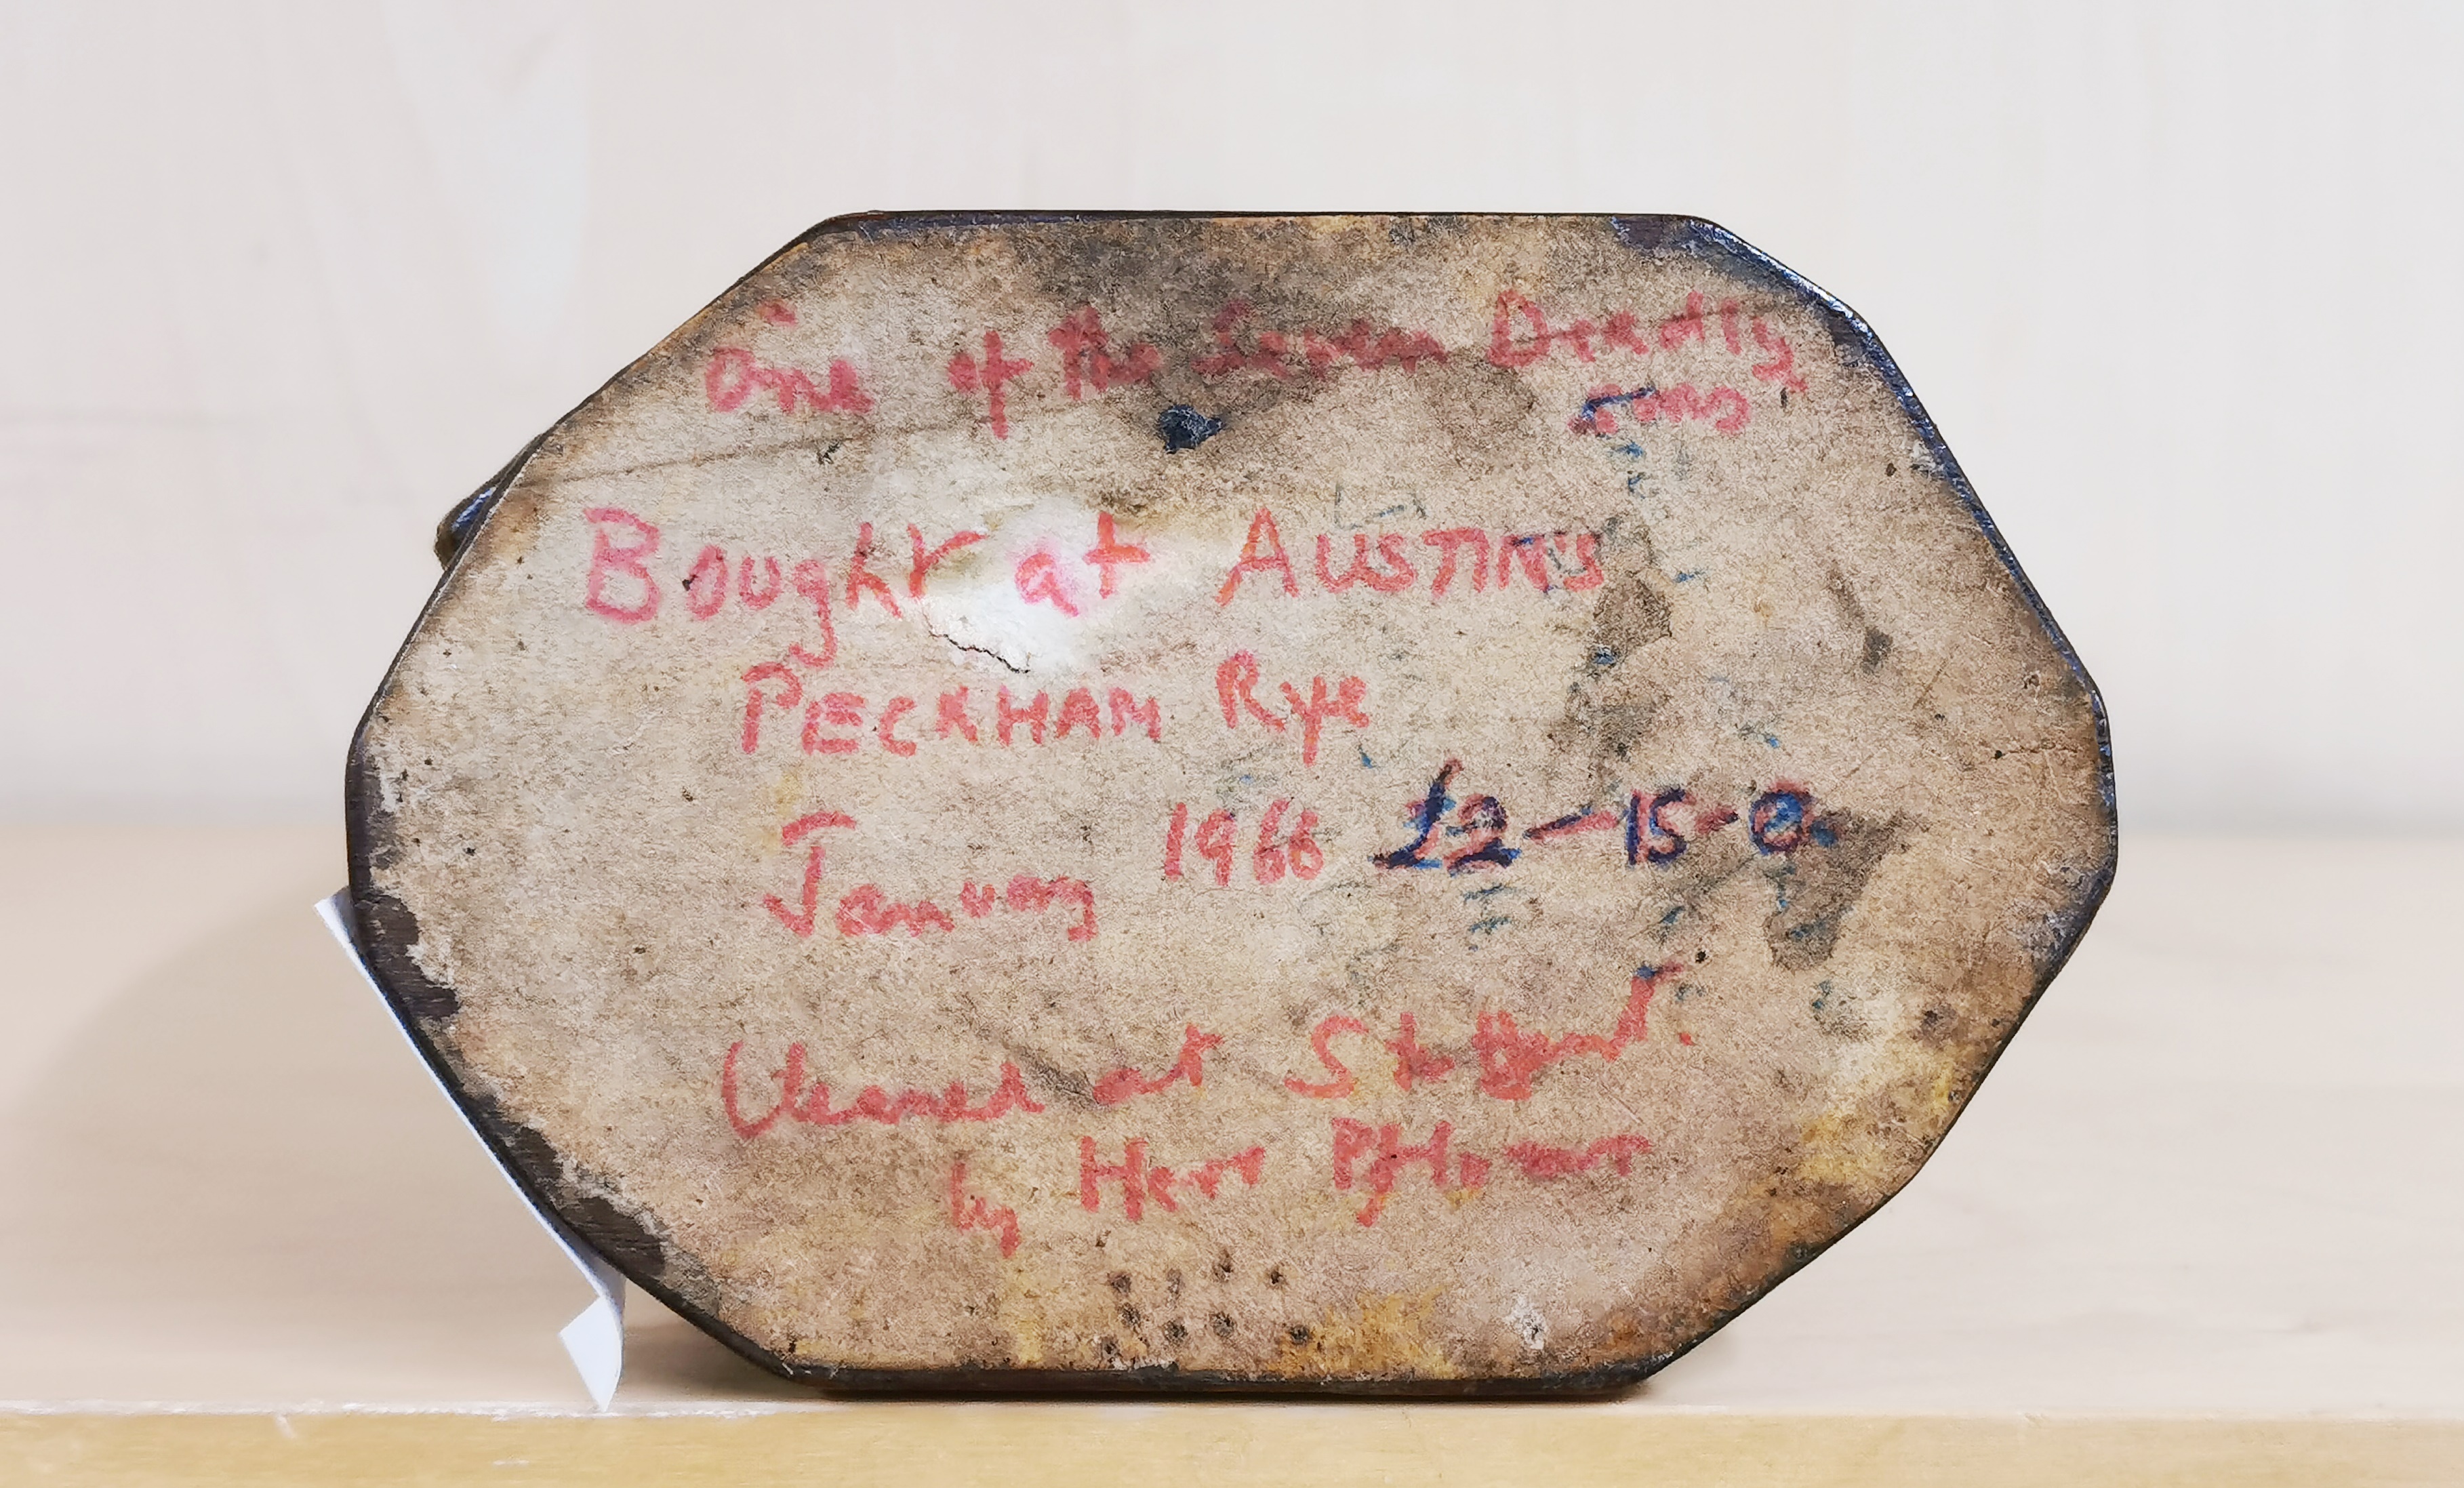 "One of the Seven Deadly
sins"
Bought at AUSTIN'S
PECKHAM Rye
January 1966 £2-15-0.
Cleaned at Stuttgart.
by Herr